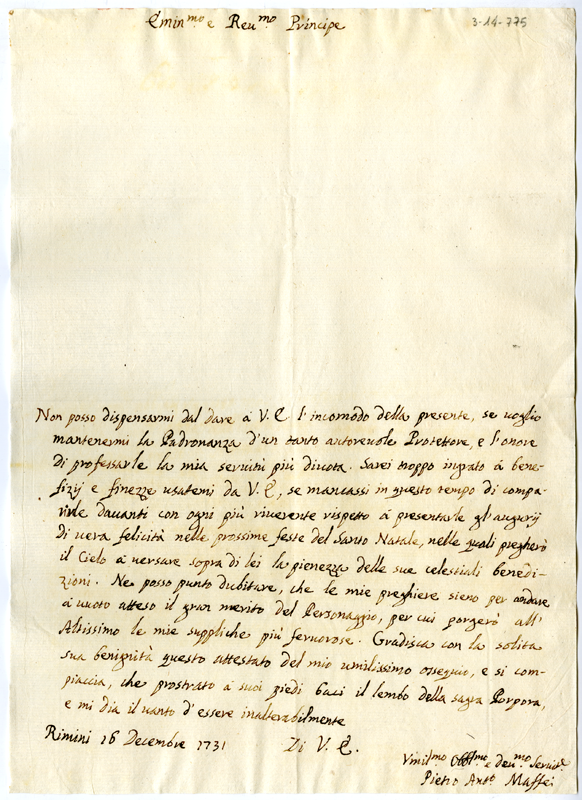 Emin.mo e Reu.mo Principe
3-14-775
Non posso dispensarmi dal dare à V. E. l'incomodo della presente, se uoglio
mantenermi la Padronanza d'un tanto autoreuole Protettore, e l'onore
di professarle la mia seruitù più diuota. Sarei troppo ingrato à bene-
fizij e finezze usatemi da V. E., se mancassi in questo tempo di compa-
rirle dauanti con ogni più riuerente rispetto à presentarle gl'augurij
di uera felicità nelle prossime feste del Santo Natale, nelle quali pregherò
il Cielo à uersare sopra di lei la pienezza delle sue celestiali benedi-
zioni. Ne posso punto dubitare, che le mie preghiere sieno per andare
à uuoto atteso il gran merito del Personaggio, per cui porgerò all'
Altissimo le mie suppliche più feruorose. Gradisca con la solita
sua benignità questo attestato del mio umilissimo ossequio, e si com-
piaccia, che prostrato a suoi piedi baci il lembo della sagra Porpora,
e mi dia il uanto d'essere inalterabilmente
Rimini 16 Decembre 1731 Di V. E.
Vmil.mo Obbl.mo e deu.mo Seruit.e
Pietro Ant.o Maffei